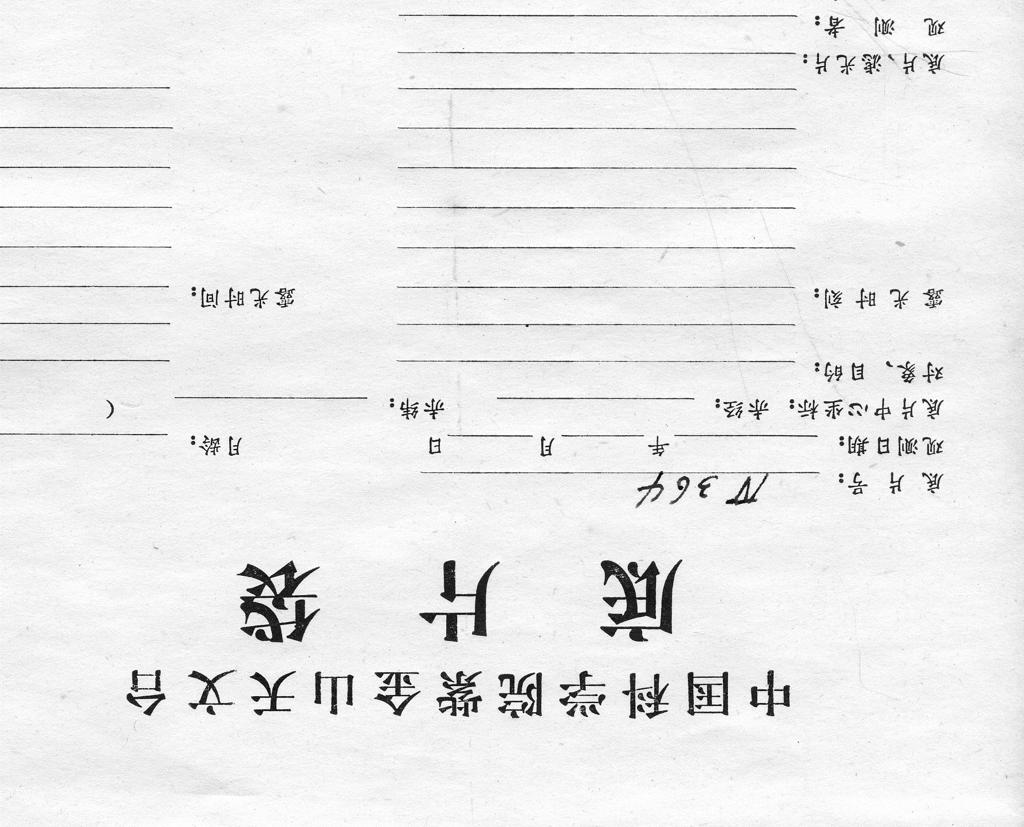 中国科学院紫金山天文台
底片袋
底片号： IV 364
观测日期： 年 月 日 月龄：
底片中心坐标： 赤经： 赤纬： (
对象、目的：
露光时刻： 露光时间：
底片、滤光片：
观测者：